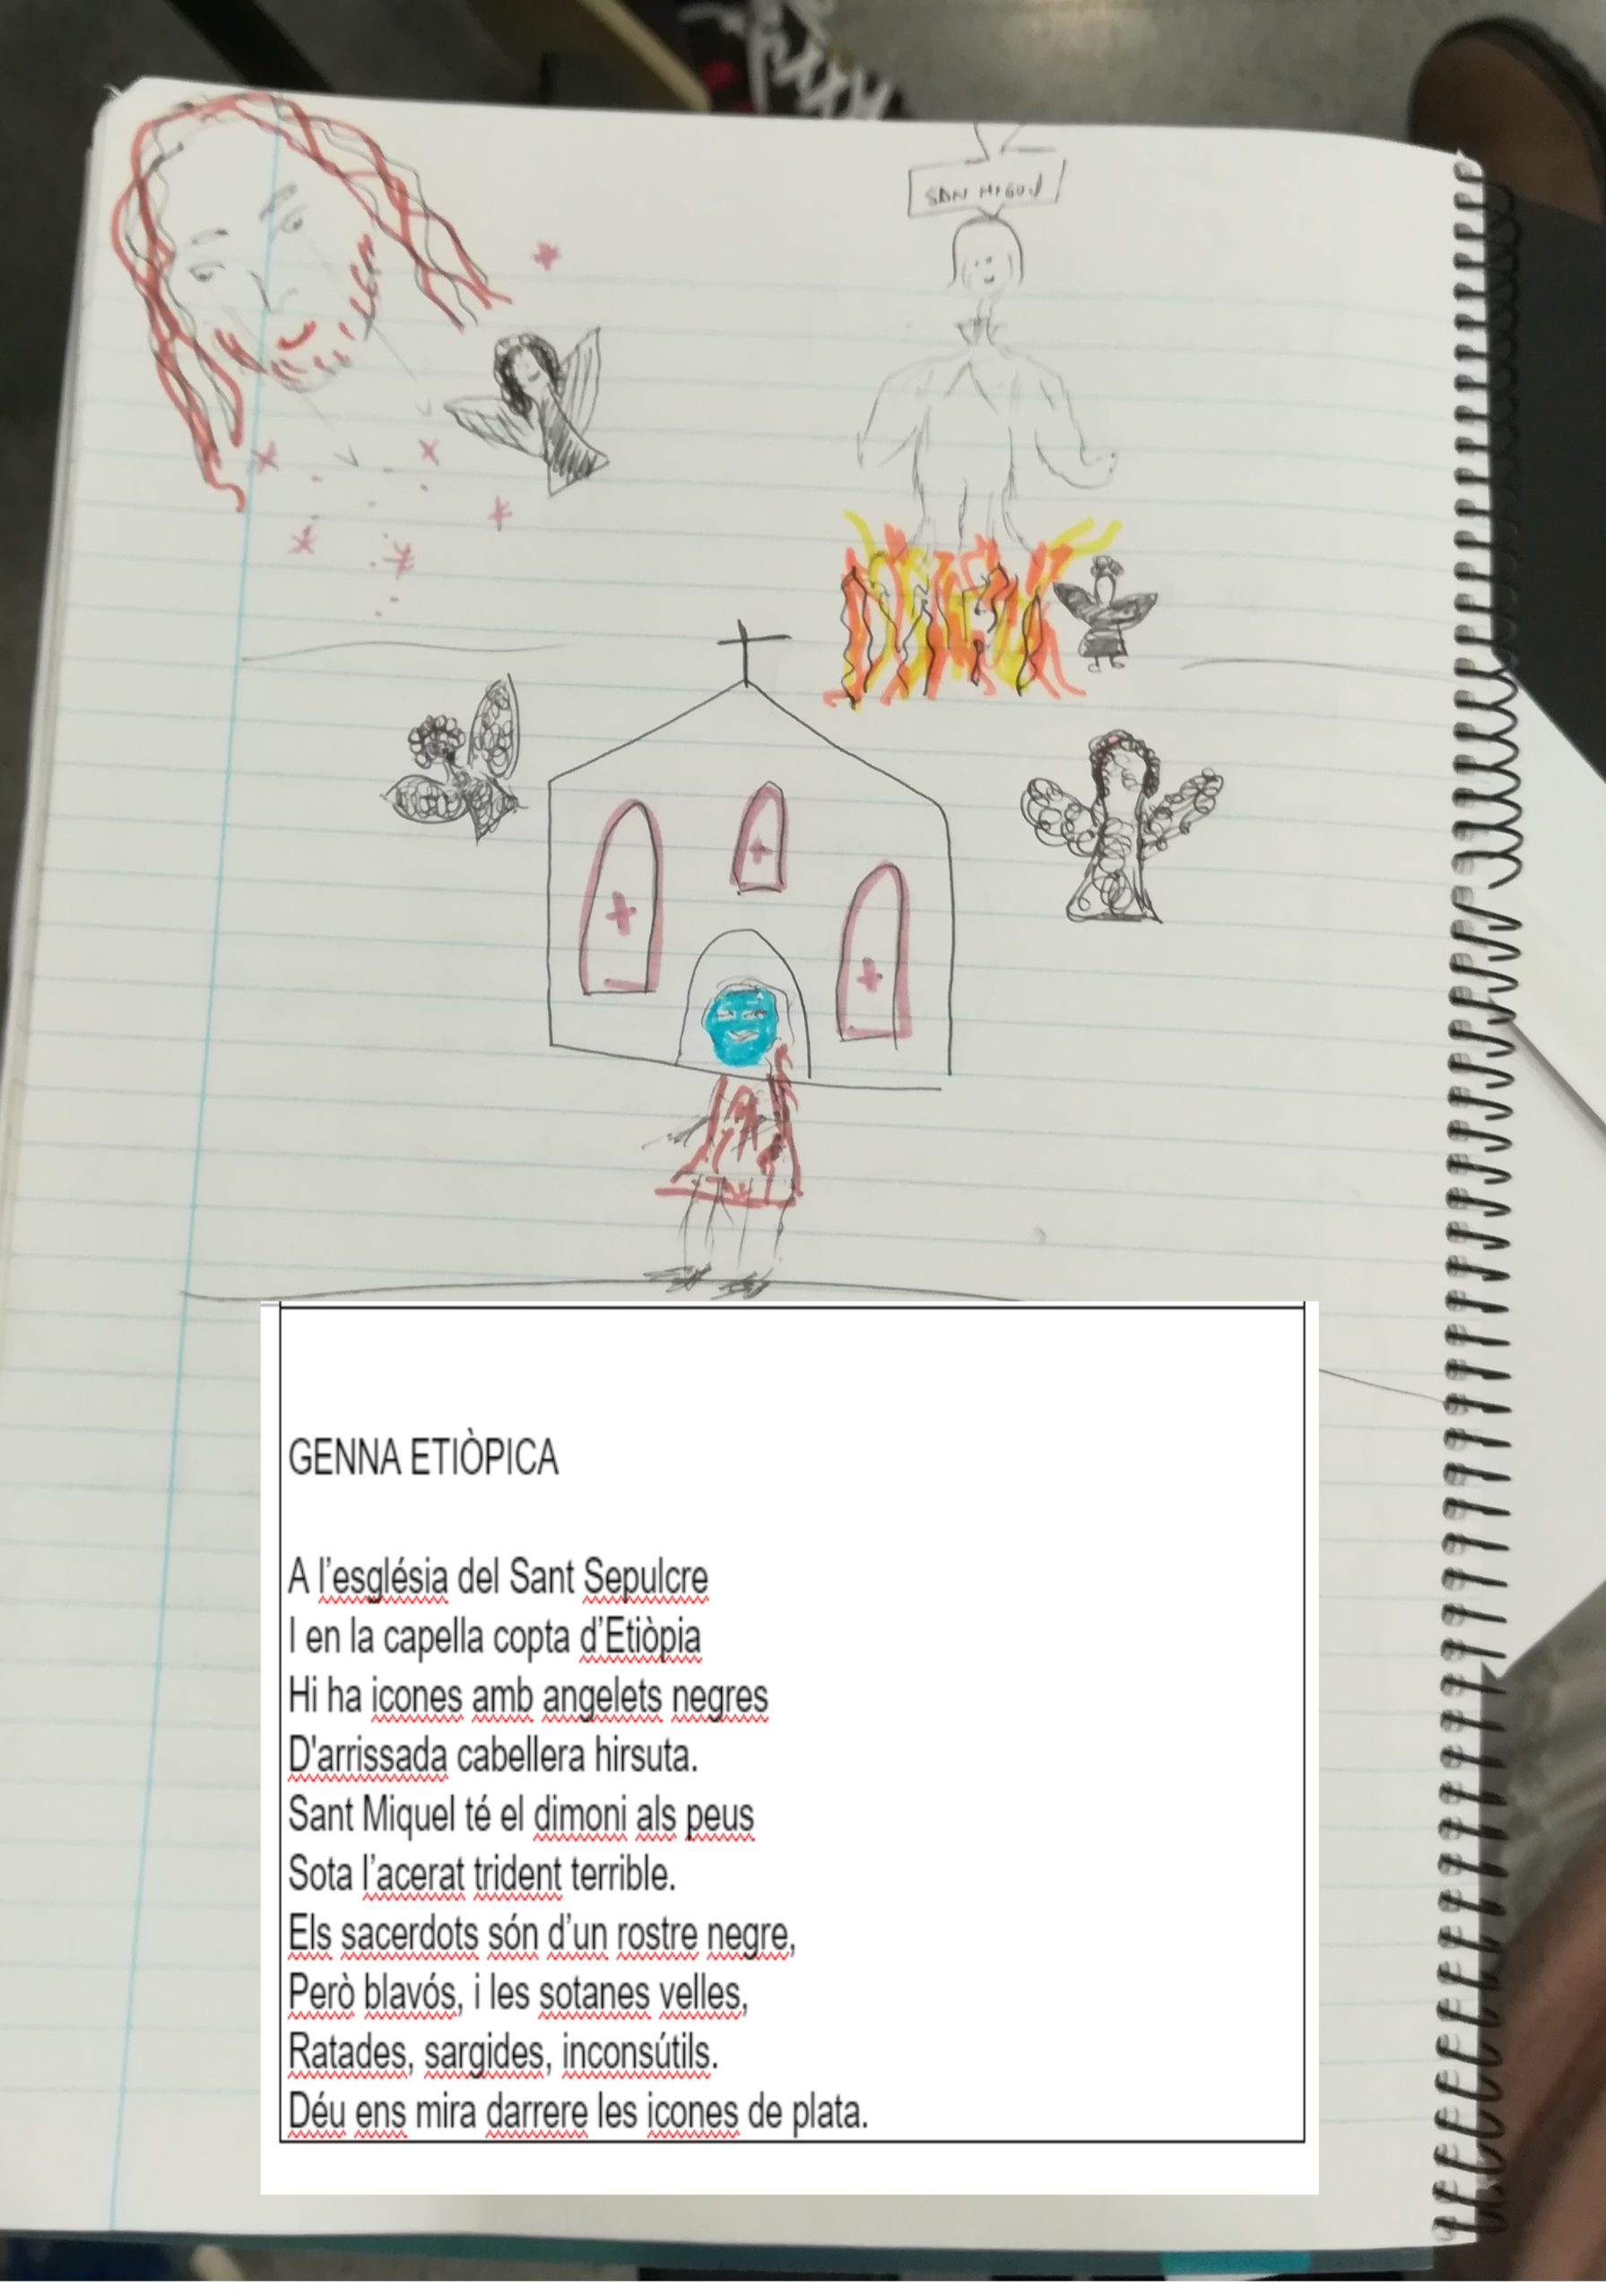 SAN MIGUEL
GENNA ETIÒPICA
A l'església del Sant Sepulcre
I en la capella copta d'Etiòpia
Hi ha icones amb angelets negres
D'arrissada cabellera hirsuta.
Sant Miquel té el dimoni als peus
Sota l'acerat trident terrible.
Els sacerdots són d'un rostre negre,
Però blavós, i les sotanes velles,
Ratades, sargides, inconsútils.
Déu ens mira darrere les icones de plata.